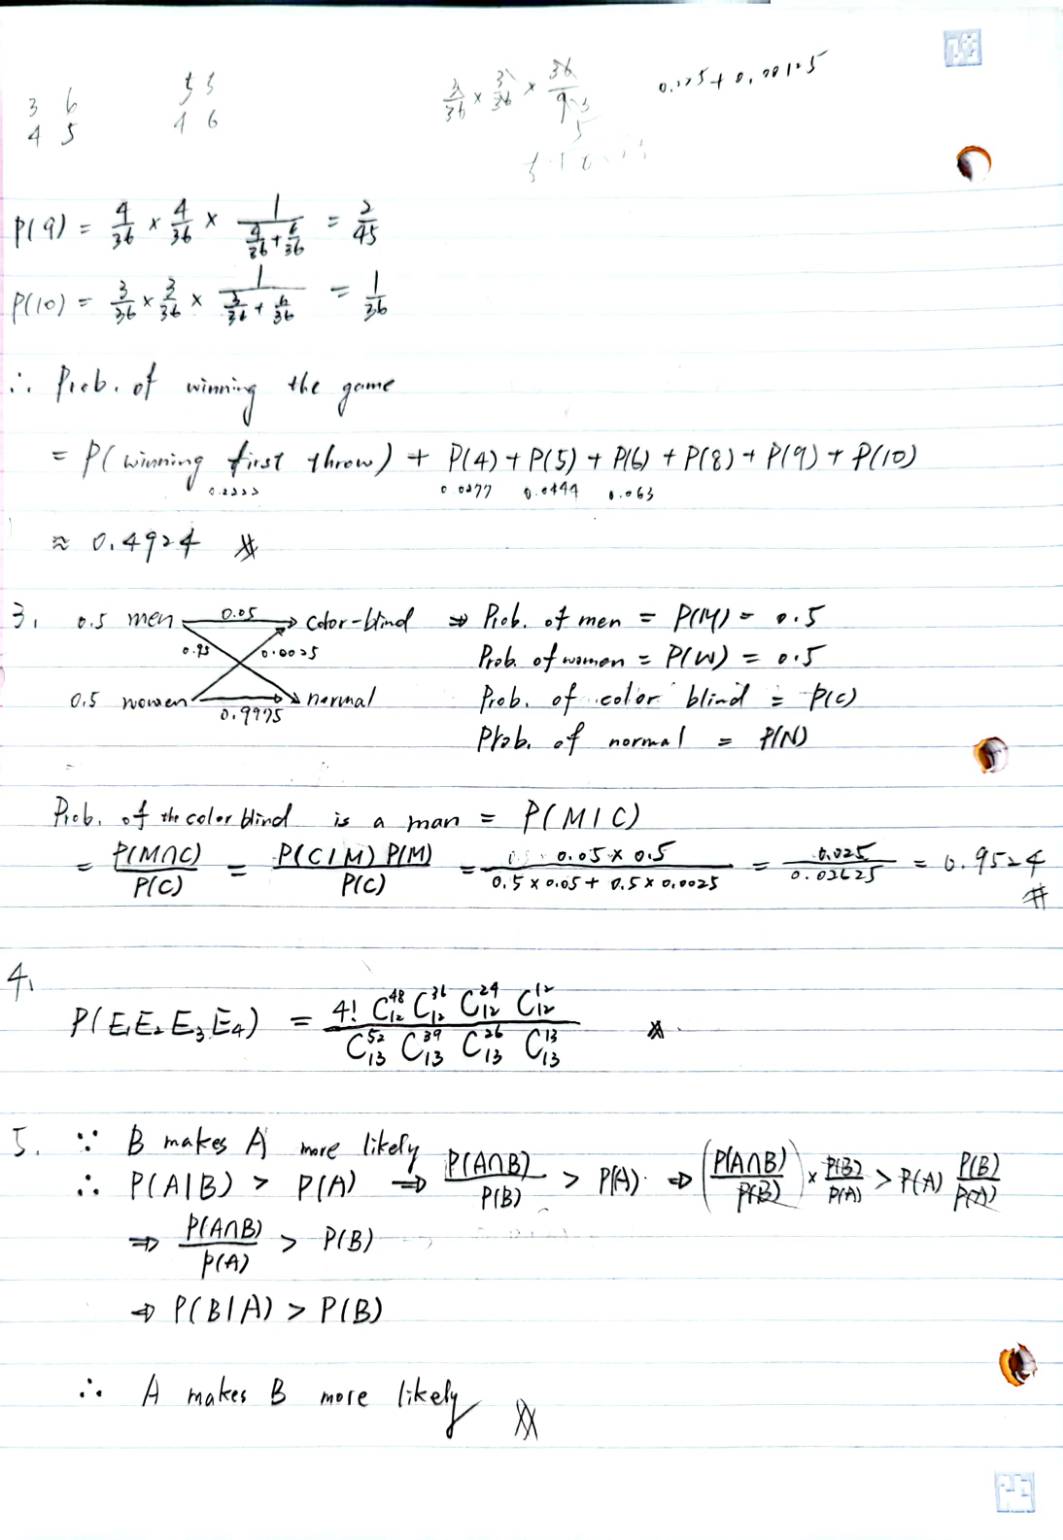 3 6
4 5
5 5
4 6
3/36 × 3/36 × 36/9
P(9) = 4/36 × 4/36 × 1/(4/36 + 6/36) = 2/45
P(10) = 3/36 × 3/36 × 1/(3/36 + 6/36) = 1/36
∴ Prob. of winning the game
= P(winning first throw) + P(4) + P(5) + P(6) + P(8) + P(9) + P(10)
0.2222 0.0277 0.0444 0.063
≈ 0.4924
3. 0.5 men 0.05 color-blind ⇒ Prob. of men = P(M) = 0.5
0.95 0.0025 Prob. of women = P(W) = 0.5
0.5 women 0.9975 normal Prob. of color blind = P(C)
Prob. of normal = P(N)
Prob. of the color blind is a man = P(M|C)
= P(M∩C)/P(C) = P(C|M) P(M)/P(C) = 0.05 × 0.5/(0.5 × 0.05 + 0.5 × 0.0025) = 0.025/0.02625 = 0.9524 #
4.
P(E₁E₂E₃E₄) = 4! C⁴⁸₁₂ C³⁶₁₂ C²⁴₁₂ C¹²₁₂ / C⁵²₁₃ C³⁹₁₃ C²⁶₁₃ C¹³₁₃
5. ∵ B makes A more likely
∴ P(A|B) > P(A) ⇒ P(A∩B)/P(B) > P(A) ⇒ (P(A∩B)/P(B)) × P(B)/P(A) > P(A) P(B)/P(A)
⇒ P(A∩B)/P(A) > P(B)
⇒ P(B|A) > P(B)
∴ A makes B more likely